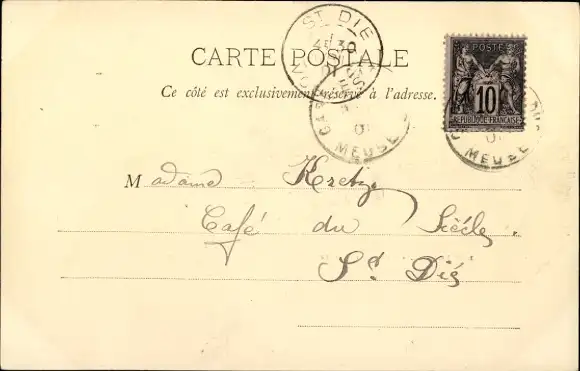 ST DIE
CARTE POSTALE
Ce côté est exclusivement réservé à l'adresse.
POSTE
10
REPUBLIQUE FRANÇAISE
MEUSE
MEUSE
Madame Kretz
Café du Siècle.
St Dié